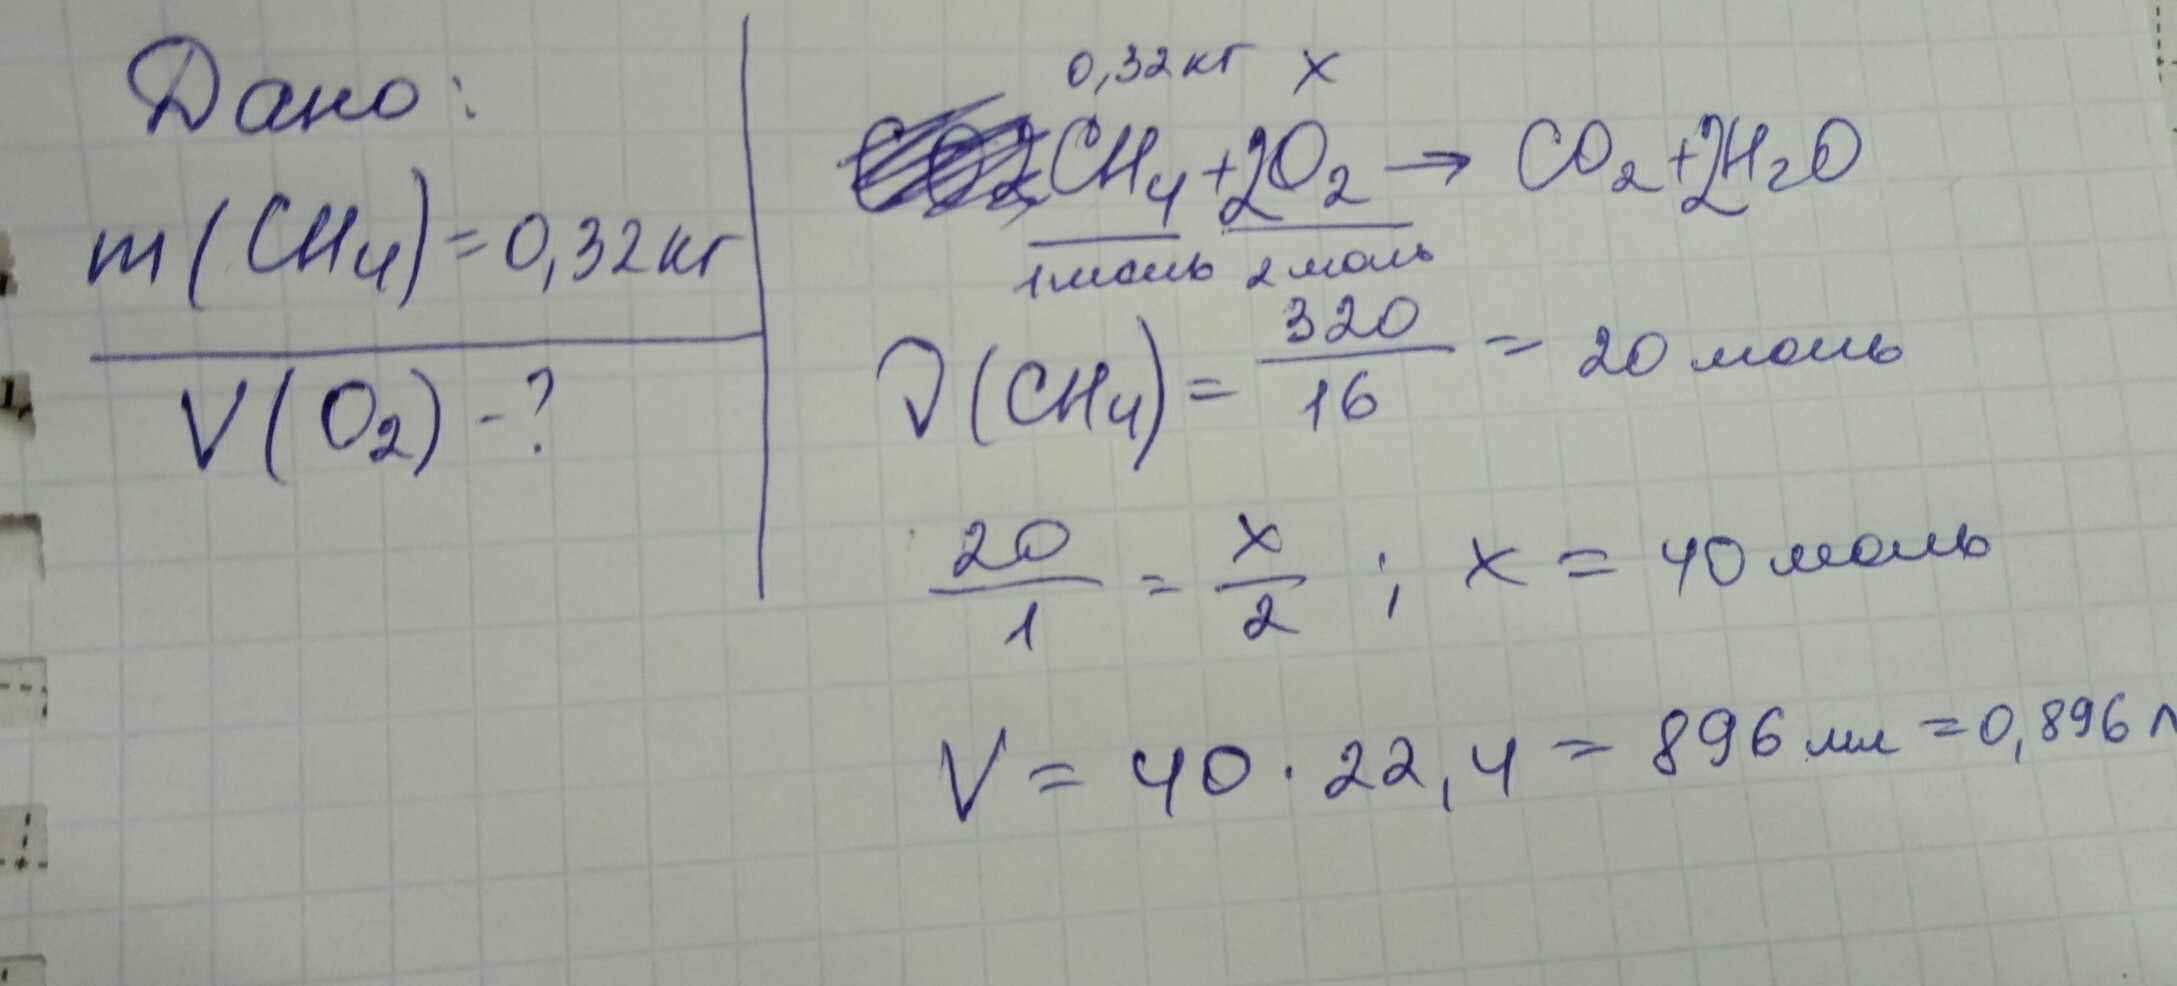 Дано:
m(CH4)=0,32кг
V(O2)-?
0,32кг x
CH4+2O2→CO2+2H2O
1моль 2моль
ν(CH4)=320/16=20моль
20/1=x/2; x=40моль
V=40·22,4=896мл=0,896л